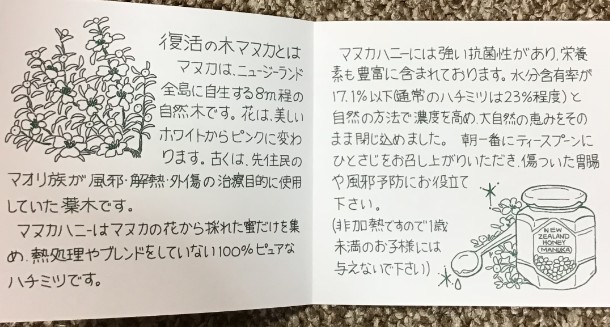 復活の木マヌカとは
マヌカは、ニュージーランド
全島に自生する8m程の
自然木です。花は、美しい
ホワイトからピンクに変わ
ります。古くは、先住民の
マオリ族が風邪・解熱・外傷の治療目的に使用
していた薬木です。
マヌカハニーはマヌカの花から採れた蜜だけを集
め、熱処理やブレンドをしていない100%ピュアな
ハチミツです。
マヌカハニーには強い抗菌性があり、栄養
素も豊富に含まれております。水分含有率が
17.1%以下(通常のハチミツは23%程度)と
自然の方法で濃度を高め、大自然の恵みをその
まま閉じ込めました。 朝一番にティースプーンに
ひとさじをお召し上がりいただき、傷ついた胃腸
や風邪予防にお役立て
下さい。
(非加熱ですので1歳
未満のお子様には
与えないで下さい)
NEW
ZEALAND
HONEY
MANUKA